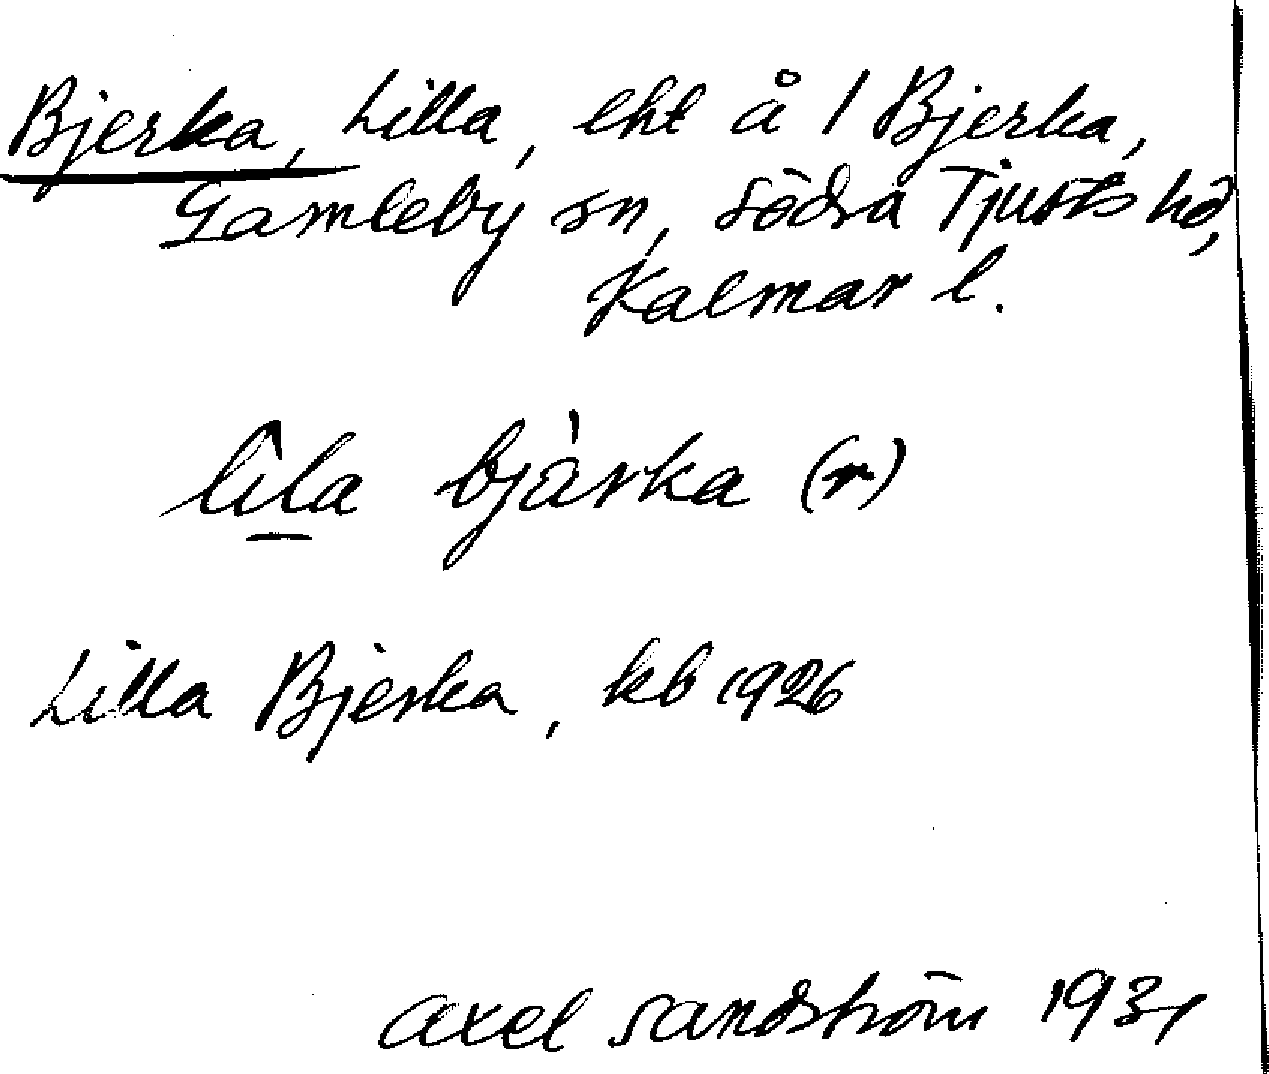 Bjerka, Lilla, eht å 1 Bjerka,
Gamleby sn, södra Tjusts hd,
Kalmar l.
lila bjàrka (r)
Lilla Bjerka, kb 1926
axel sandström 1931